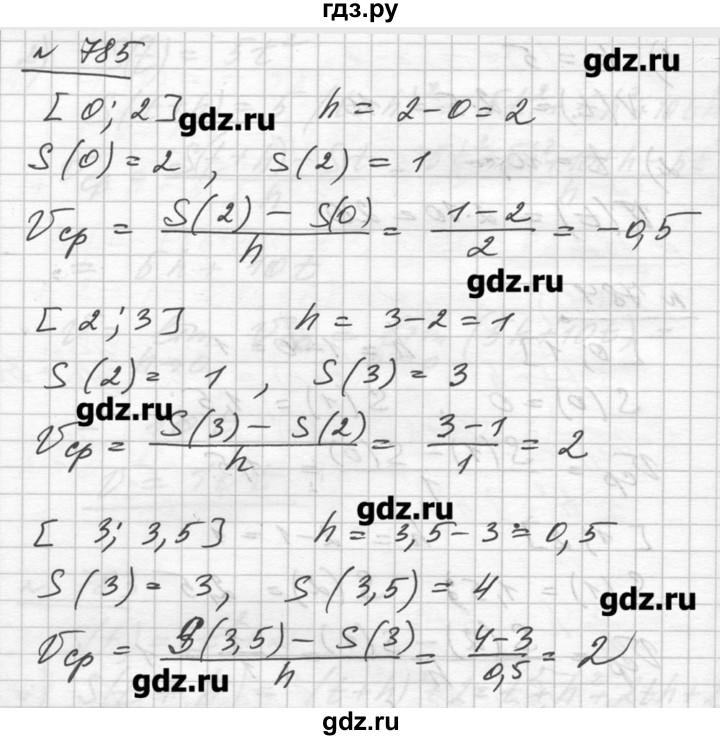 гдз.ру
№ 785
gdz.ru
[0; 2] h = 2-0 = 2
gdz.ru
S(0) = 2, S(2) = 1
Vср = (S(2) - S(0))/h = (1-2)/2 = -0,5
gdz.ru
[2; 3] h = 3-2 = 1
S(2) = 1, S(3) = 3
gdz.ru
Vср = (S(3) - S(2))/h = (3-1)/1 = 2
gdz.ru
[3; 3,5] h = 3,5-3 = 0,5
S(3) = 3, S(3,5) = 4
gdz.ru
Vср = (S(3,5) - S(3))/h = (4-3)/0,5 = 2
gdz.ru
gdz.ru